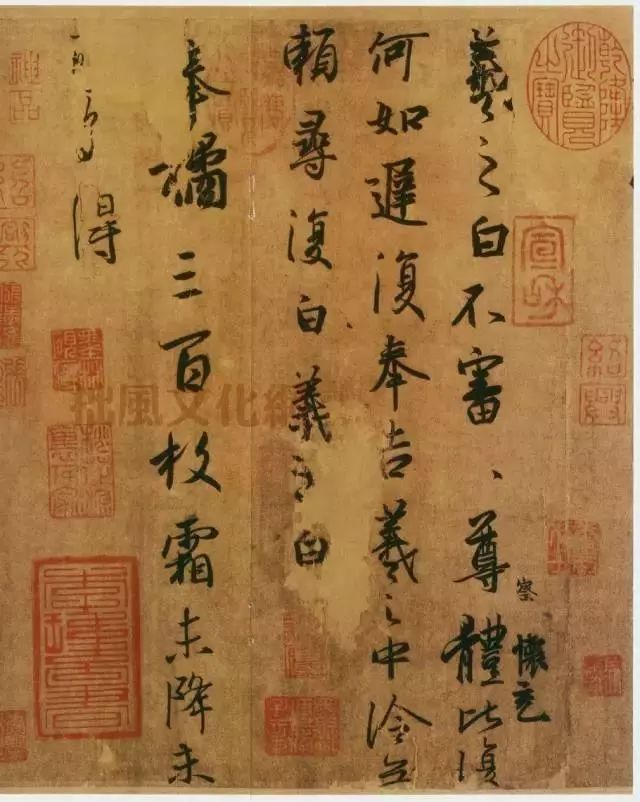 羲之白不審、尊體比復
察
懷充
何如遲復奉告羲之中冷無
賴尋復白羲之白
奉橘三百枚霜未降未
可多得
乾隆御覽之寶
宣和
紹興
神品
拙風文化網